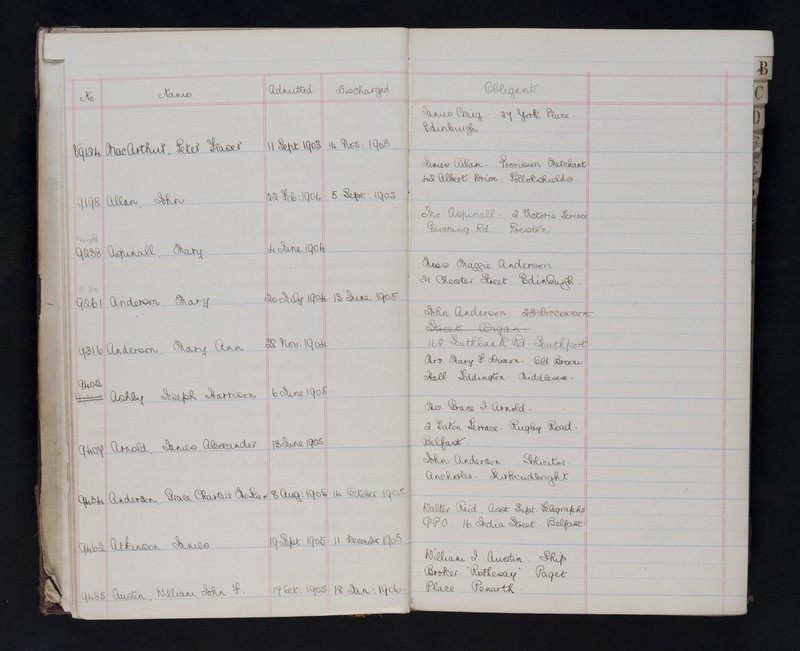 No Name Admitted Discharged Obligant
James Craig. 27 York Place.
Edinburgh
9124 MacArthur, Peter Fraser 11 Sept. 1903 14 Nov. 1903
James Allan. Provision Merchant
42 Albert Drive. Pollokshields.
9198 Allan, John 22 Feb: 1904 5 Sept: 1905
Jno. Aspinall. 2 Victoria Terrace
Garstang Rd. Preston.
9238 Aspinall, Mary 4 June 1904
Miss Maggie Anderson
24 Chester Street Edinburgh.
9261 Anderson, Mary 20 July 1904 13 June 1905
John Anderson.
Street Wigan
168 Southbank Rd. Southport
9316 Anderson, Mary Ann 28 Nov: 1904
Mrs. Mary F. Dixon. Old Broom
Hall. Teddington. Middlesex.
9402
Ashby, Joseph Harrison 6 June 1905
Mrs. Grace I. Arnold.
2 Eaton Terrace. Rugby Road.
Belfast.
9407 Arnold, James Alexander 13 June 1905
John Anderson. Solicitor.
Kirkcudbright
9434 Anderson, Grace Charters 8 Aug: 1905 14 October 1905
Walter Reid, Asst. Supt. Telegraphs
G.P.O. 16 India Street. Belfast.
9462 Atkinson, James 19 Sept. 1905 11 December 1905
William I. Austin. Ship
Broker "Rothesay" Paget
Place Penarth.
9485 Austin, William John F. 17 Oct. 1905 18 Jan: 1906
B
C
D